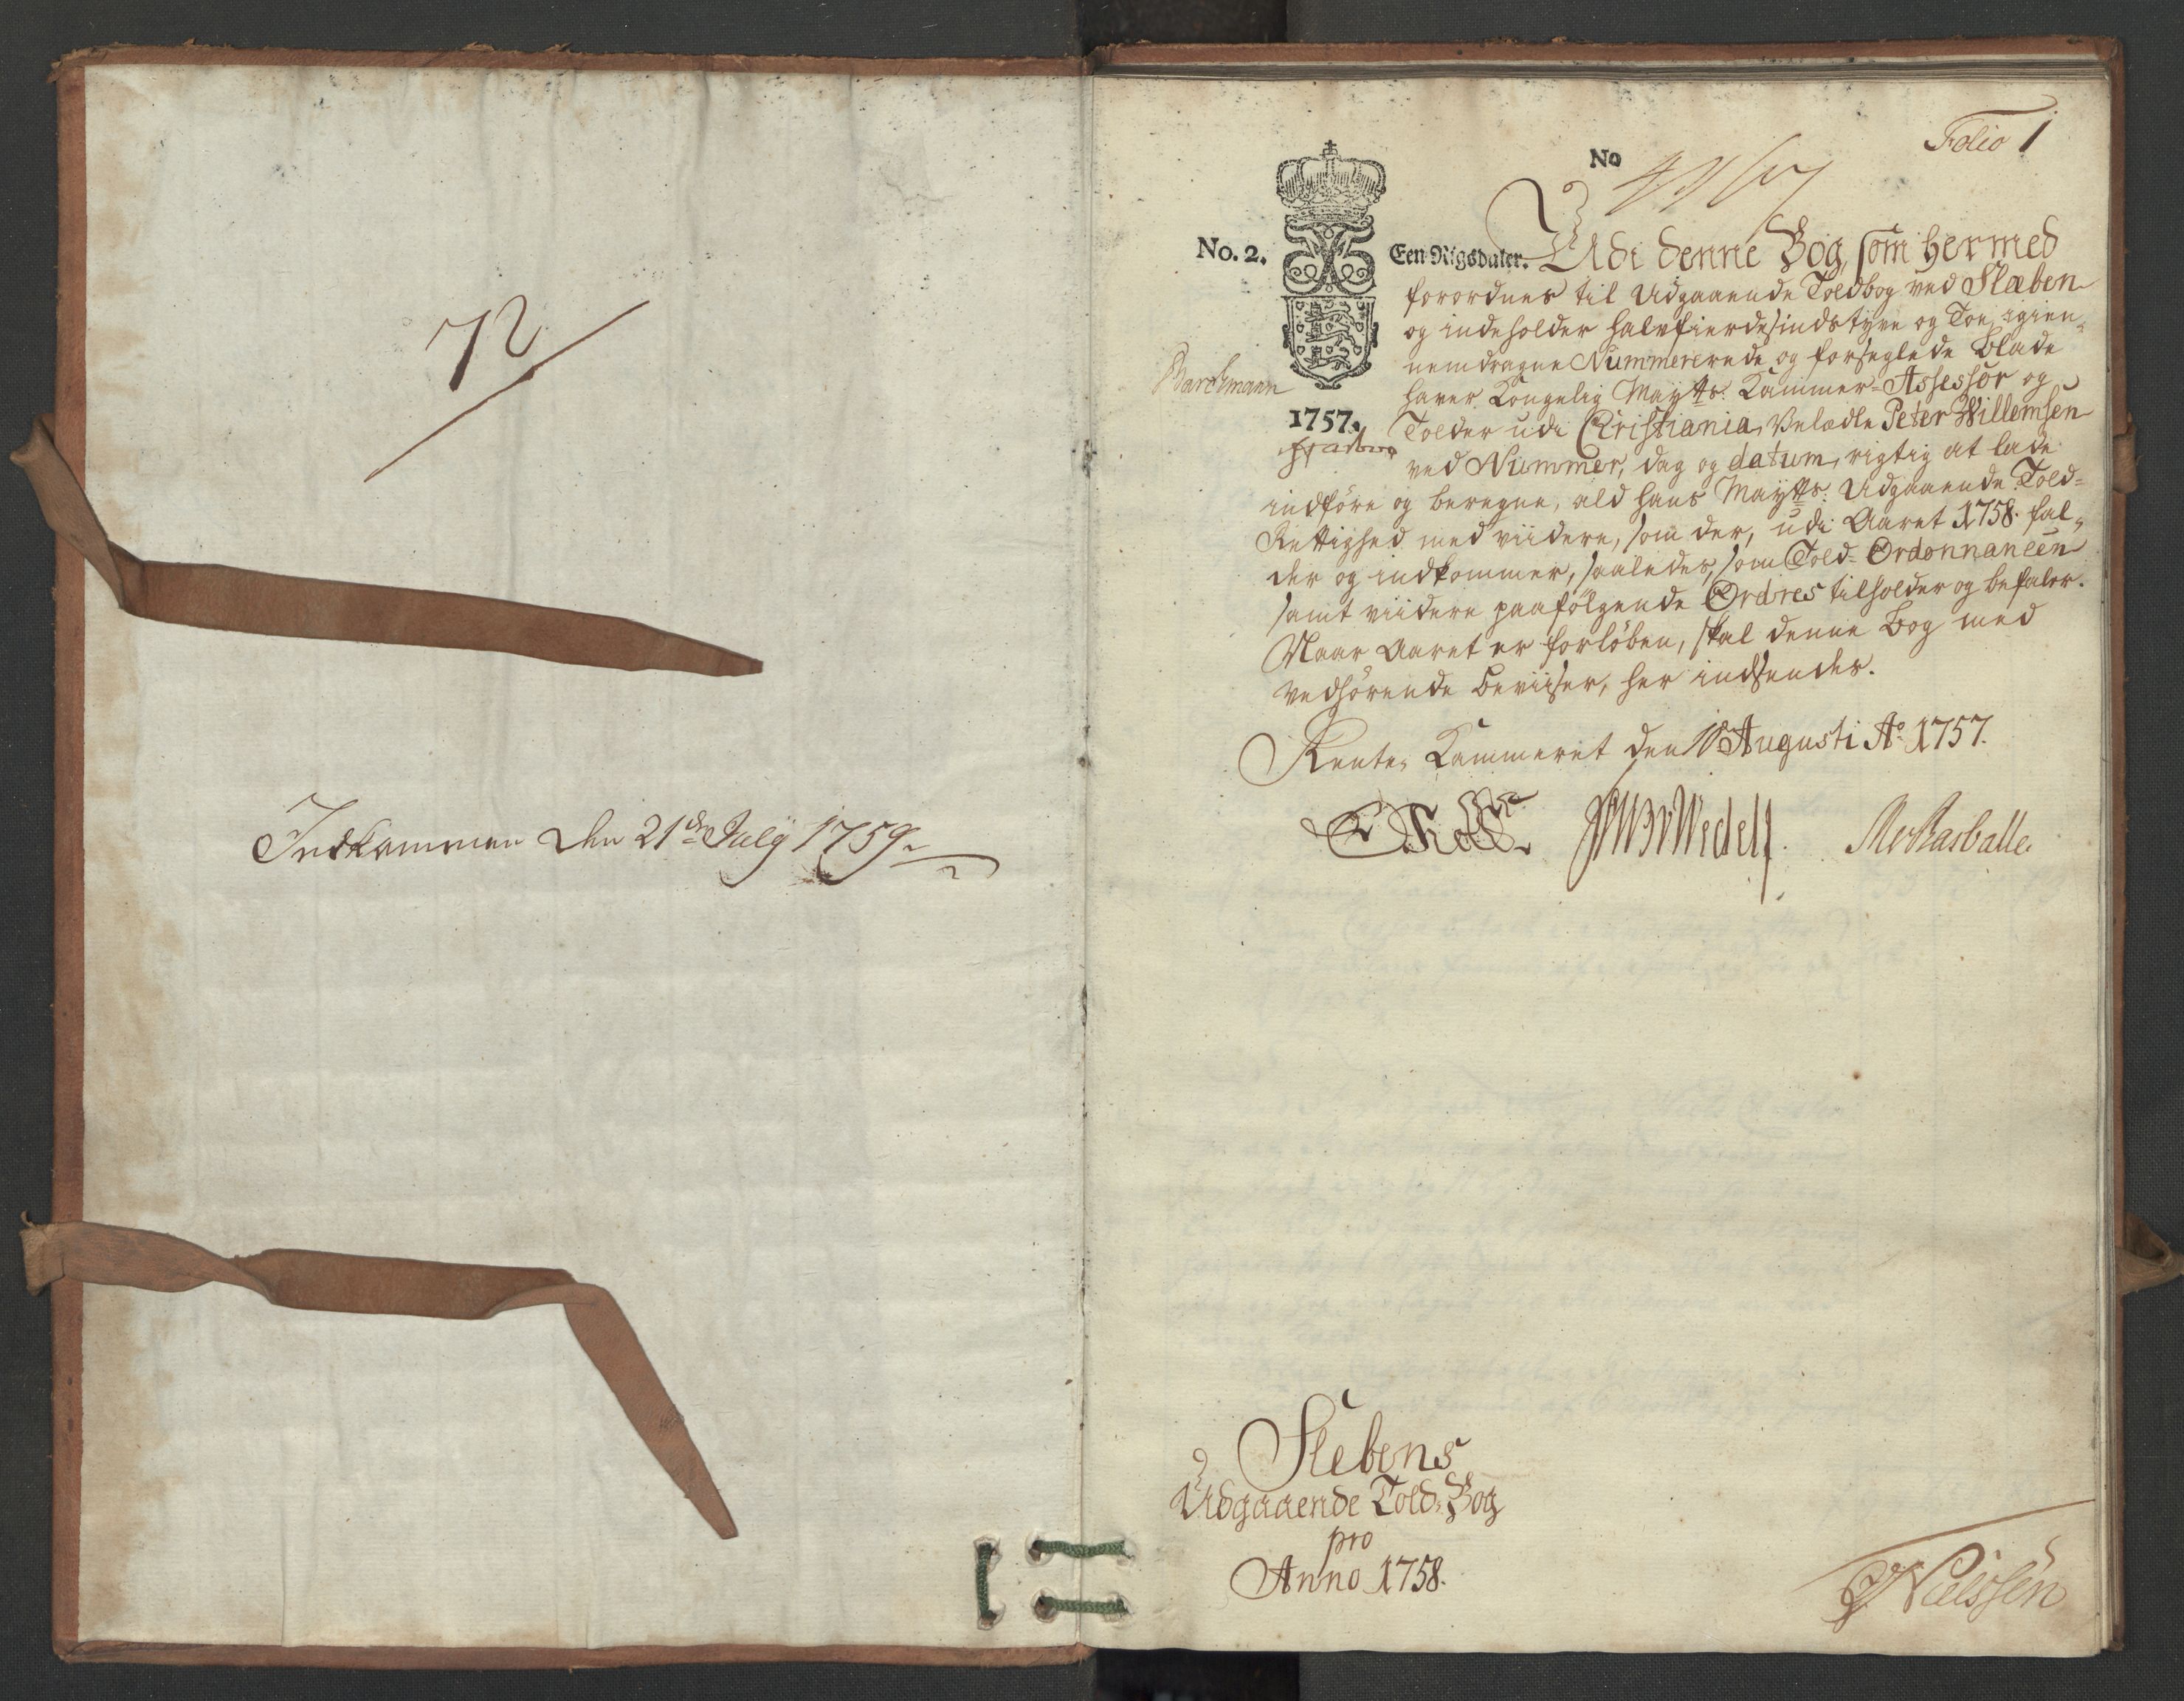 72
Indkommen den 21de July 1759.
Folio 1
No
No. 2.
Een Rigsdaler.
1757.
Udi denne Bog, som hermed
forordnes til Udgaaende Toldbog ved Slæben
og indeholder halvfierdesindstyve og Toe, igien-
nemdragne Nummererede og forseglede Blade
haver Kongelig Maytts: Kammer-Assessor og
Tolder udi Christiania, Velædle Peter Willemsen
ved Nummer, dag og datum, rigtig at lade
indföre og beregne, ald hans Maytts: Udgaaende Told-
Rettighed med viidere, som der, udi Aaret 1758. fal-
der og indkommer, saaledes, som Told-Ordonnancen
samt viidere paafölgende Ordres tilholder og befaler.
Naar Aaret er forlöben, skal denne Bog med
vedhörende Beviiser, her indsendes.
Rente-Kammeret den 18 Augusti Ao 1757.
Slebens
Udgaaende Told-Bog
pro
Anno 1758.